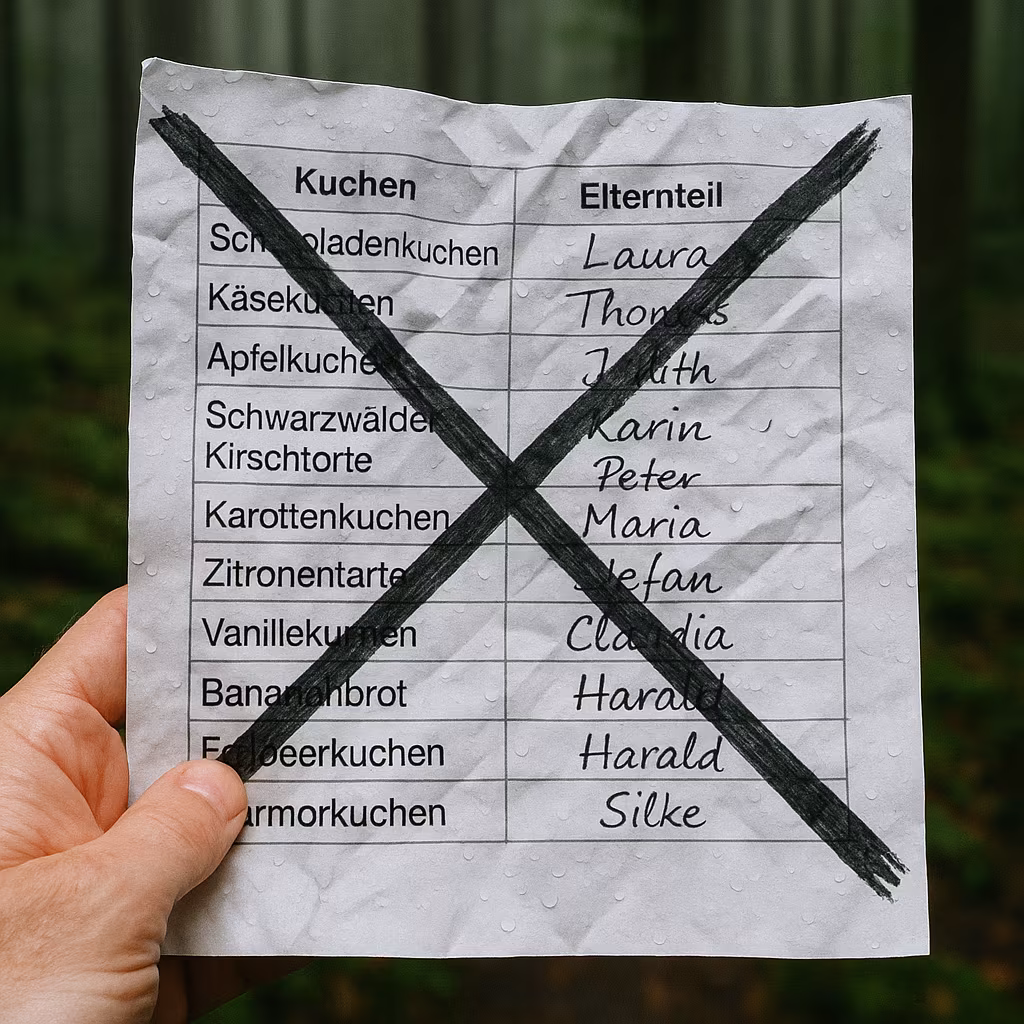 Kuchen Elternteil
Schokoladenkuchen Laura
Käsekuchen Thomas
Apfelkuchen Judith
Schwarzwälder Karin
Kirschtorte Peter
Karottenkuchen Maria
Zitronentarte Stefan
Vanillekuchen Claudia
Bananenbrot Harald
Erdbeerkuchen Harald
Marmorkuchen Silke